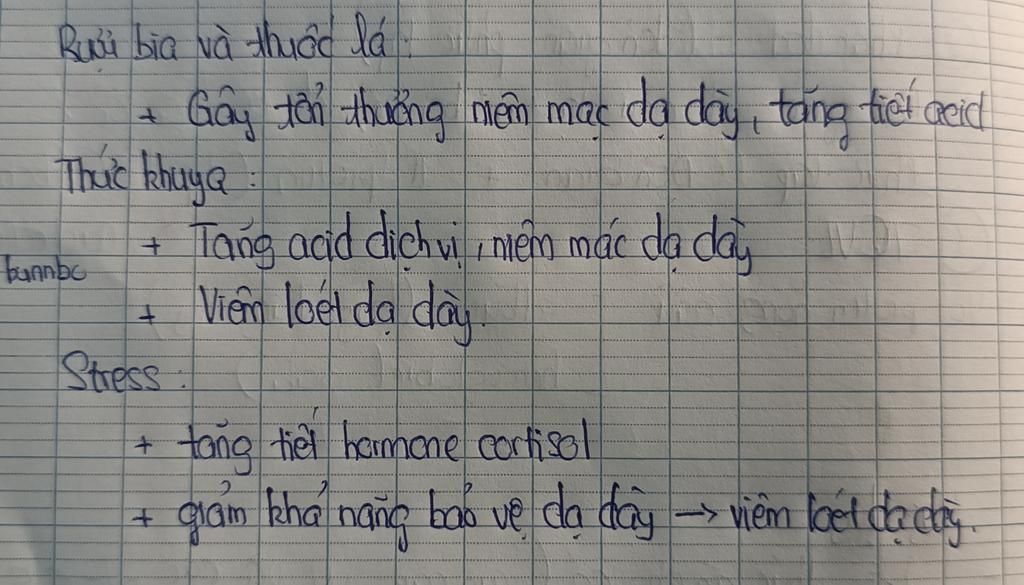 Rượu bia và thuốc lá :
+ Gây tổn thương niêm mạc dạ dày, tăng tiết acid
Thức khuya :
+ Tăng acid dịch vị, niêm mác dạ dày
bannbc
+ Viêm loét dạ dày.
Stress :
+ tăng tiết hormone cortisol
+ giảm khả năng bảo vệ dạ dày → viêm loét dạ dày.